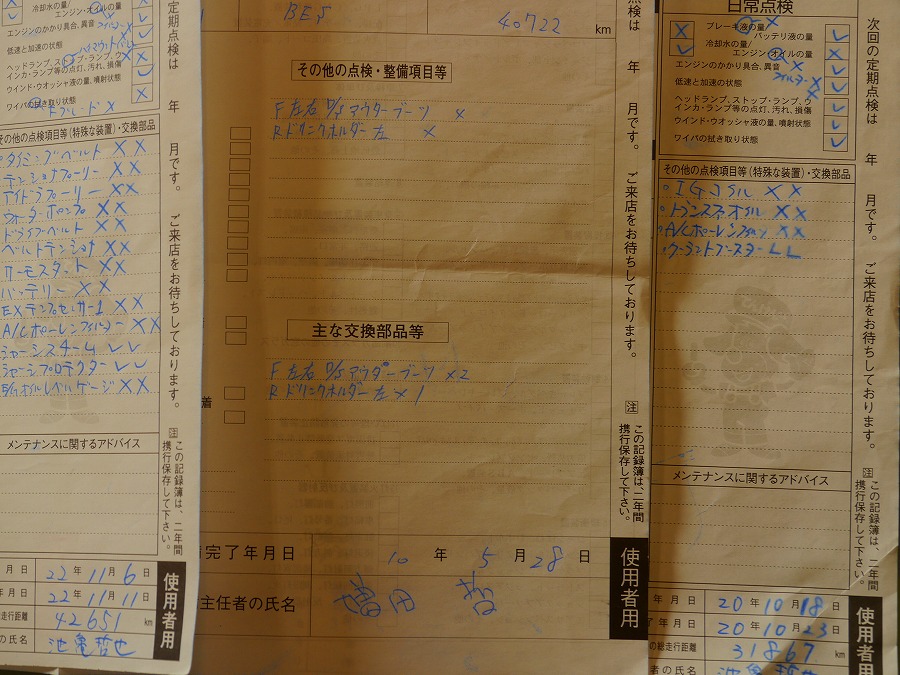 冷却水の量/
エンジン・オイルの量
エンジンのかかり具合、異音
低速と加速の状態
ヘッドランプ、ストップ・ランプ、ウ
インカ・ランプ等の点灯、汚れ、損傷
ウインド・ウオッシャ液の量、噴射状態
ワイパの拭き取り状態
その他の点検項目等(特殊な装置)・交換部品
タイミングベルト ××
テンショナプーリー ××
アイドラプーリー ××
ウォーターポンプ ××
ドライブベルト ××
ベルトテンショナ ××
サーモスタット ××
バッテリー ××
A/Cポーレンフィルター ××
メンテナンスに関するアドバイス
月 日 22年 11月 6日
年 月 日 22年 11月 11日
走行距離 42651 km
の氏名 池亀哲也
使用者用
定期点検は 年 月です。 ご来店をお待ちしております。
注 この記録簿は、二年間
携行保存して下さい。
BE5
40722 km
その他の点検・整備項目等
F 左右 D/S アウターブーツ ×
R ドリンクホルダー 左 ×
主な交換部品等
F 左右 D/S アウターブーツ ×2
R ドリンクホルダー 左 ×1
着
完了年月日 10年 5月 28日
主任者の氏名 増田 哲
使用者用
点検は 年 月です。 ご来店をお待ちしております。
注 この記録簿は、二年間
携行保存して下さい。
日常点検
ブレーキ液の量/
バッテリ液の量
冷却水の量/
エンジン・オイルの量
エンジンのかかり具合、異音
低速と加速の状態
ヘッドランプ、ストップ・ランプ、ウ
インカ・ランプ等の点灯、汚れ、損傷
ウインド・ウオッシャ液の量、噴射状態
ワイパの拭き取り状態
その他の点検項目等(特殊な装置)・交換部品
IGコイル ××
A/Cポーレンフィルタ ××
クーラントブースター LL
メンテナンスに関するアドバイス
年 月 日 20年 10月 18日
年 月 日 20年 10月 23日
の総走行距離 31867 km
者の氏名 池亀哲也
使用者用
次回の定期点検は 年 月です。 ご来店をお待ちしております。
注 この記録簿は、二年間
携行保存して下さい。